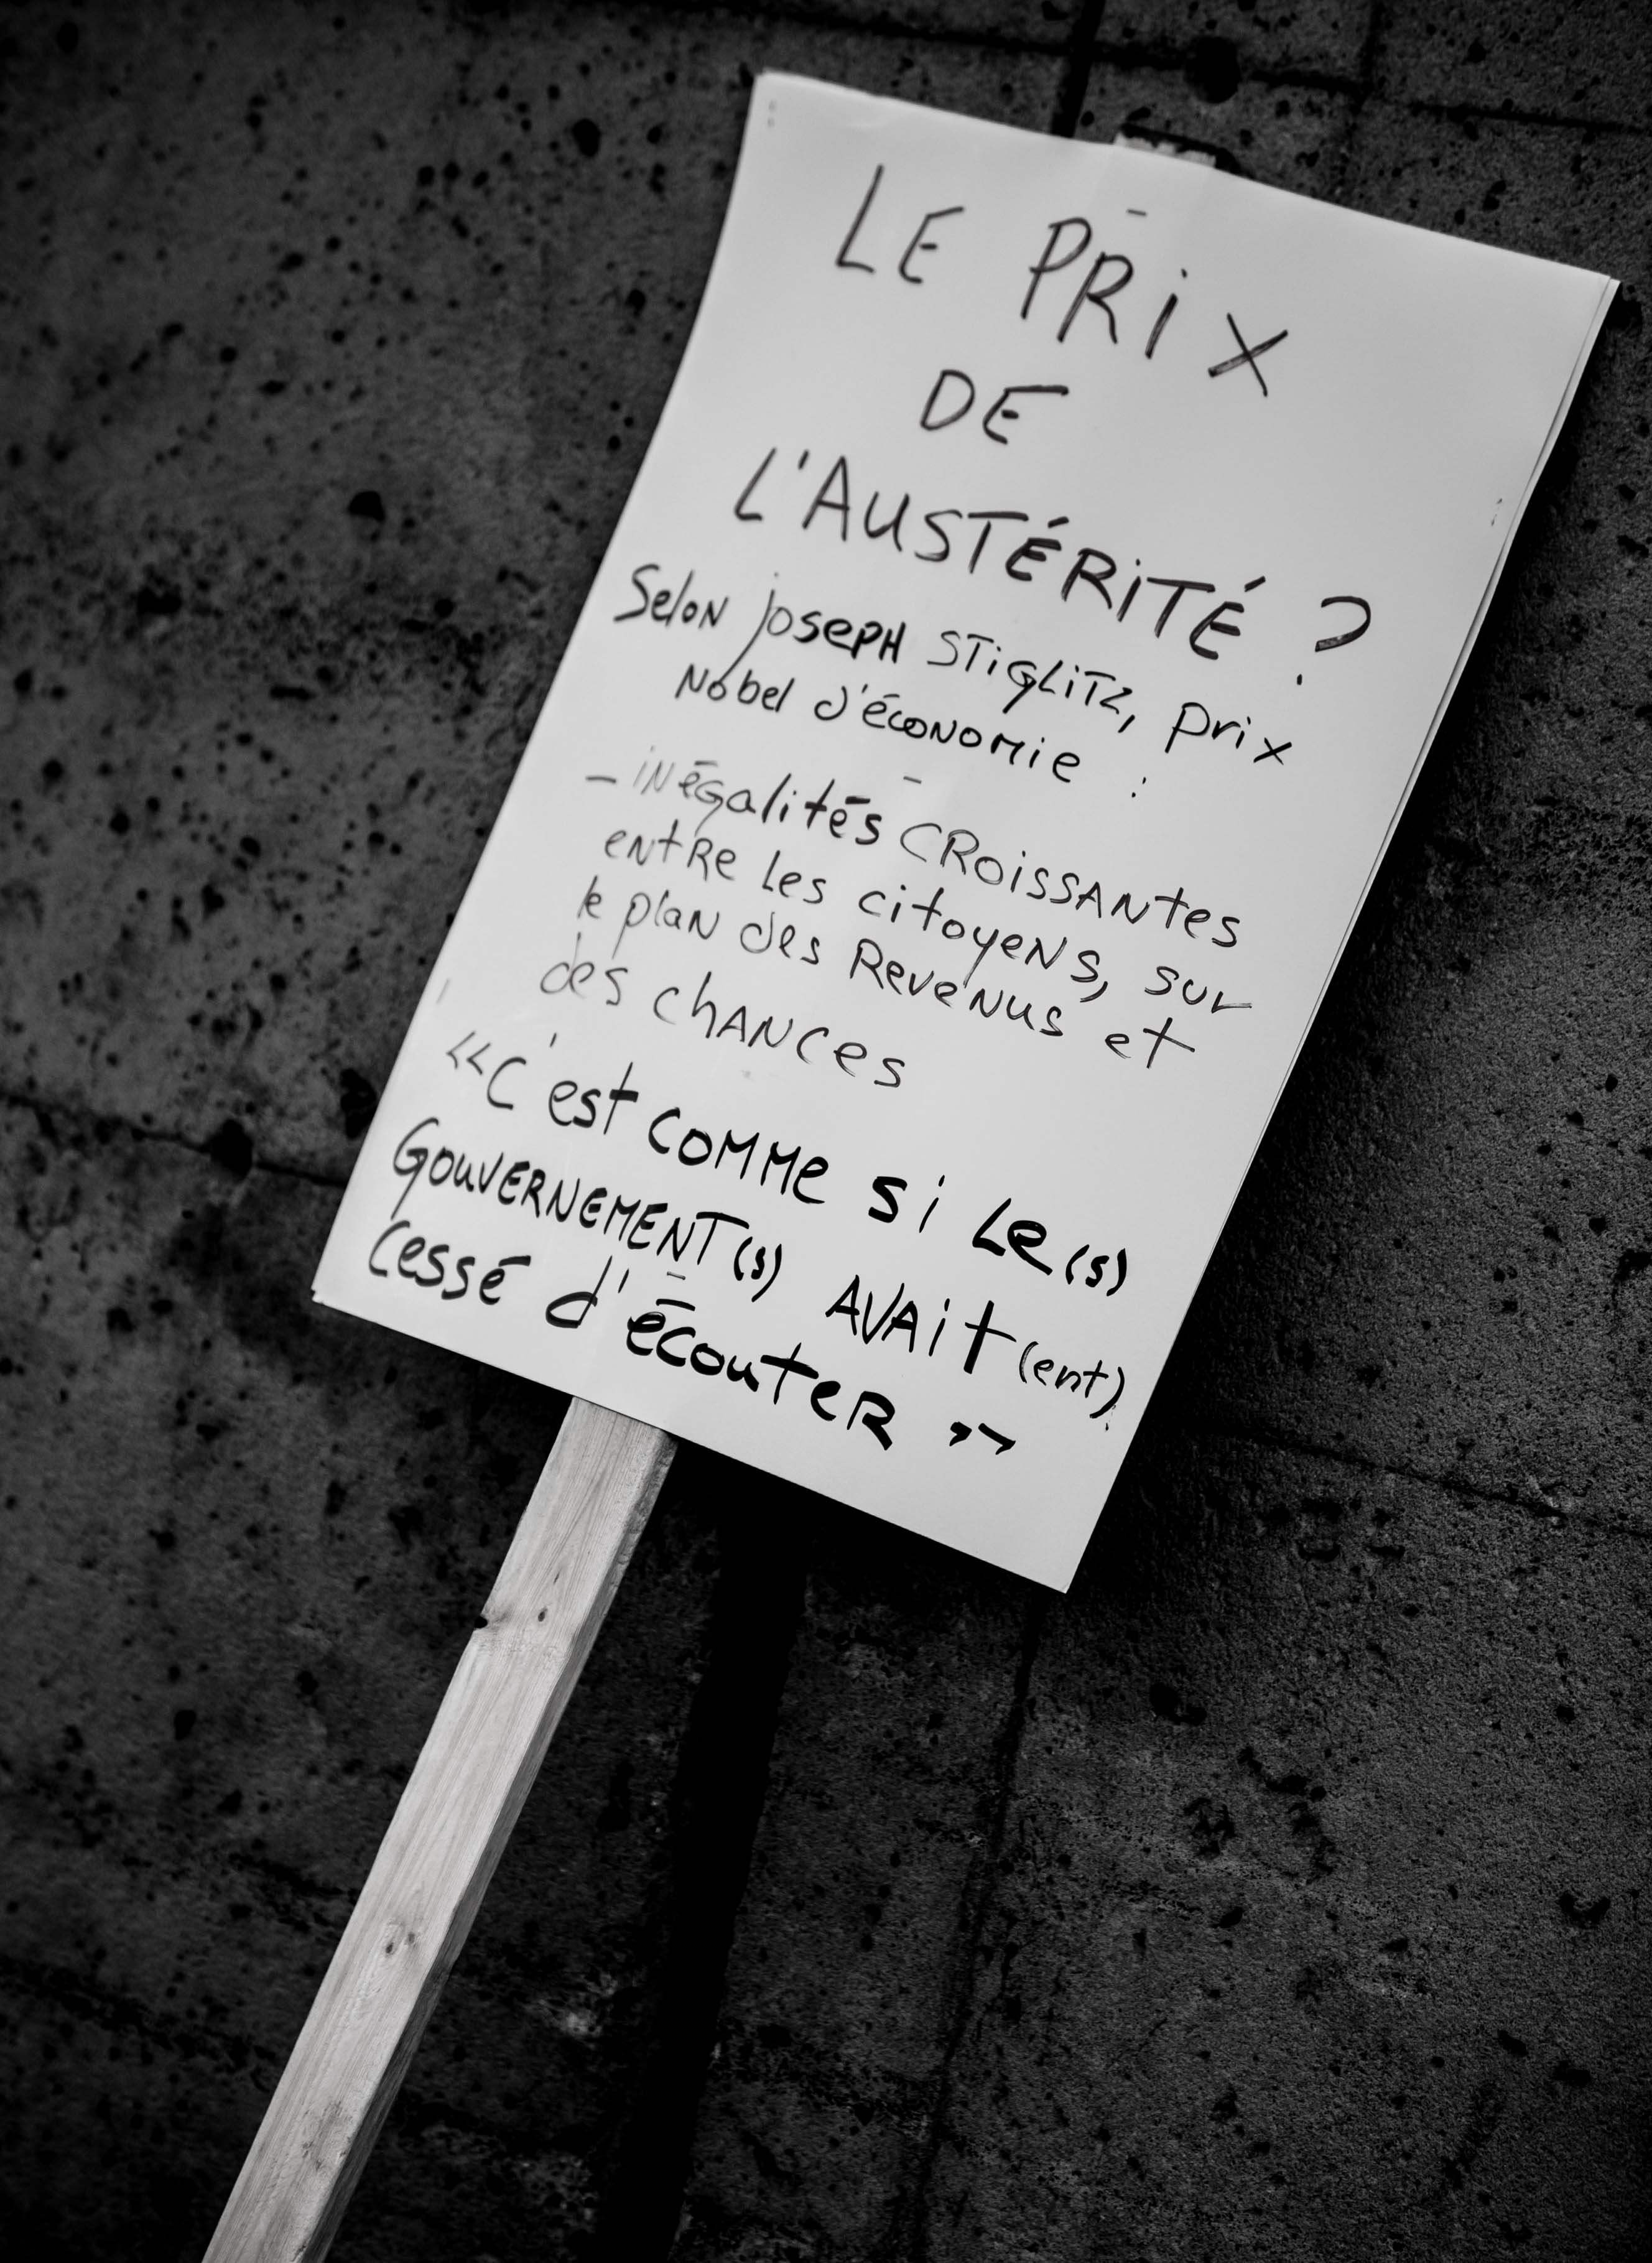 LE PRiX
DE
L'AUSTÉRiTÉ ?
Selon joseph STiGLiTZ, prix
Nobel d'économie :
- inégalités CRoissantes
entre les citoyens, sur
le plan des Revenus et
des chances
<<C'est comme si Le(s)
GOUVERNEMENT(s) AVAit(ent)
Cessé d'écouter >>